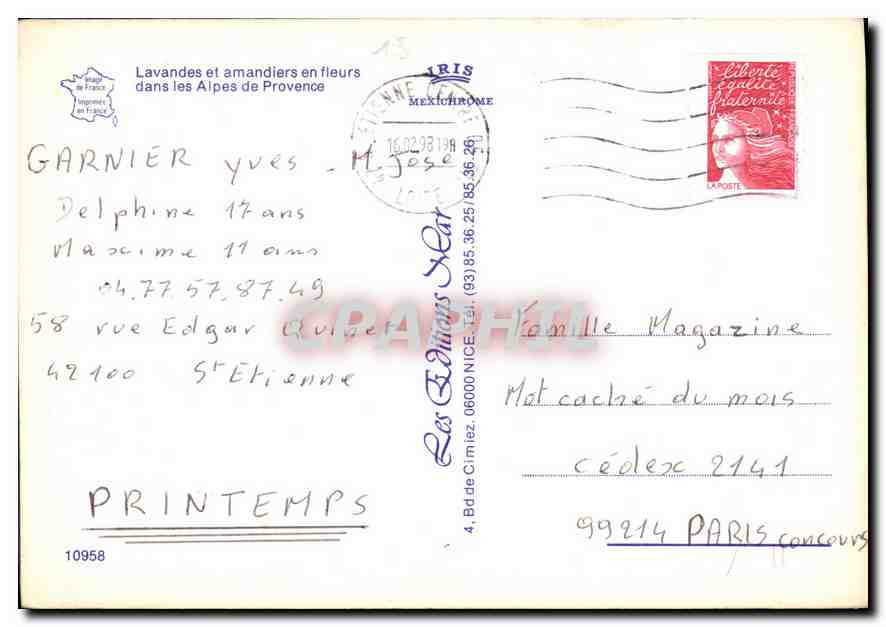 Image
de France
Imprimée
en France
Lavandes et amandiers en fleurs
dans les Alpes de Provence
15
IRIS
MEXICHROME
ETIENNE CENTRE
16.02.98 19H
liberté
égalité
fraternité
LA POSTE
GARNIER yves - M. José
Delphine 17 ans
Maxime 11 ans
04.77.57.87.49
58 rue Edgar Quinet
42100 St Etienne
PRINTEMPS
10958
Les Editions Mar
4, Bd. de Cimiez. 06000 NICE. Tél. (93) 85.36.25/85.36.26
CPAPHIL
Famille Magazine
Mot caché du mois
cédex 2141
99214 PARIS concours